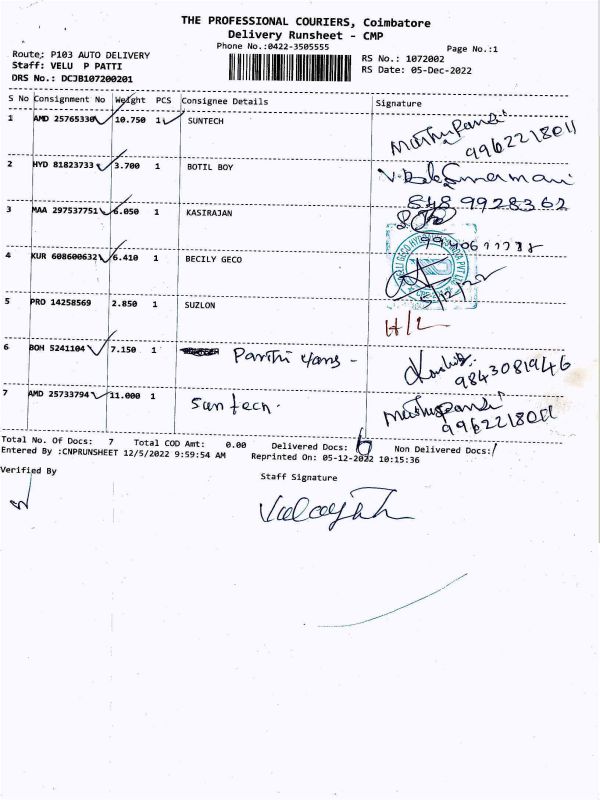 THE PROFESSIONAL COURIERS, Coimbatore
Delivery Runsheet - CMP
Phone No.:0422-3505555
Page No.:1
Route: P103 AUTO DELIVERY
Staff: VELU P PATTI
DRS No.: DCJB107200201
RS No.: 1072002
RS Date: 05-Dec-2022
S No Consignment No Weight PCS Consignee Details Signature
1 AMD 25765330 10.750 1 SUNTECH
9962218011
2 HYD 81823733 3.700 1 BOTIL BOY
848 9928362
3 MAA 297537751 6.050 1 KASIRAJAN
4 KUR 608600632 6.410 1 BECILY GECO
5/12/22
5 PRO 14258569 2.850 1 SUZLON H/L
6 BOH 5241104 7.150 1 Panthi yarns -
9843081946
7 AMD 25733794 11.000 1 Suntech.
9962218011
Total No. Of Docs: 7 Total COD Amt: 0.00 Delivered Docs: 6 Non Delivered Docs: 1
Entered By :CNPRUNSHEET 12/5/2022 9:59:54 AM Reprinted On: 05-12-2022 10:15:36
Verified By
Staff Signature